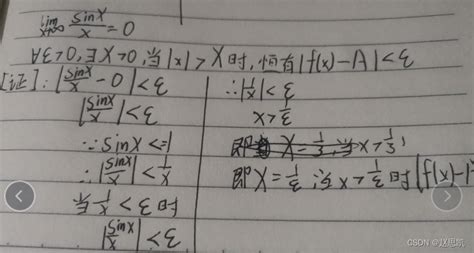 lim x→∞ sinx/x = 0
∀ε>0,∃X>0,当|x|>X时,恒有|f(x)-A|<ε
[证]:|sinx/x - 0|<ε
|sinx/x|<ε
∵sinx<=1
∴|sinx/x|<1/x
当1/x<ε时
|sinx/x|<ε
∴|1/x|<ε
x>1/ε
即X=1/ε,当x>1/ε时|f(x)-
CSDN @赵思凯